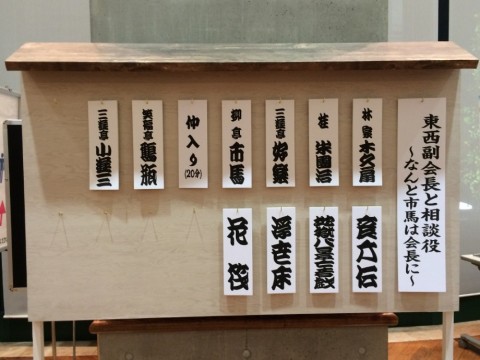 東西副会長と相談役
~なんと市馬は会長に~
林家 木久扇
桂 米團治
三遊亭 好楽
柳亭 市馬
仲入り
(20分)
笑福亭 鶴瓶
三遊亭 小遊三
亥六伝
浮世床
花筏